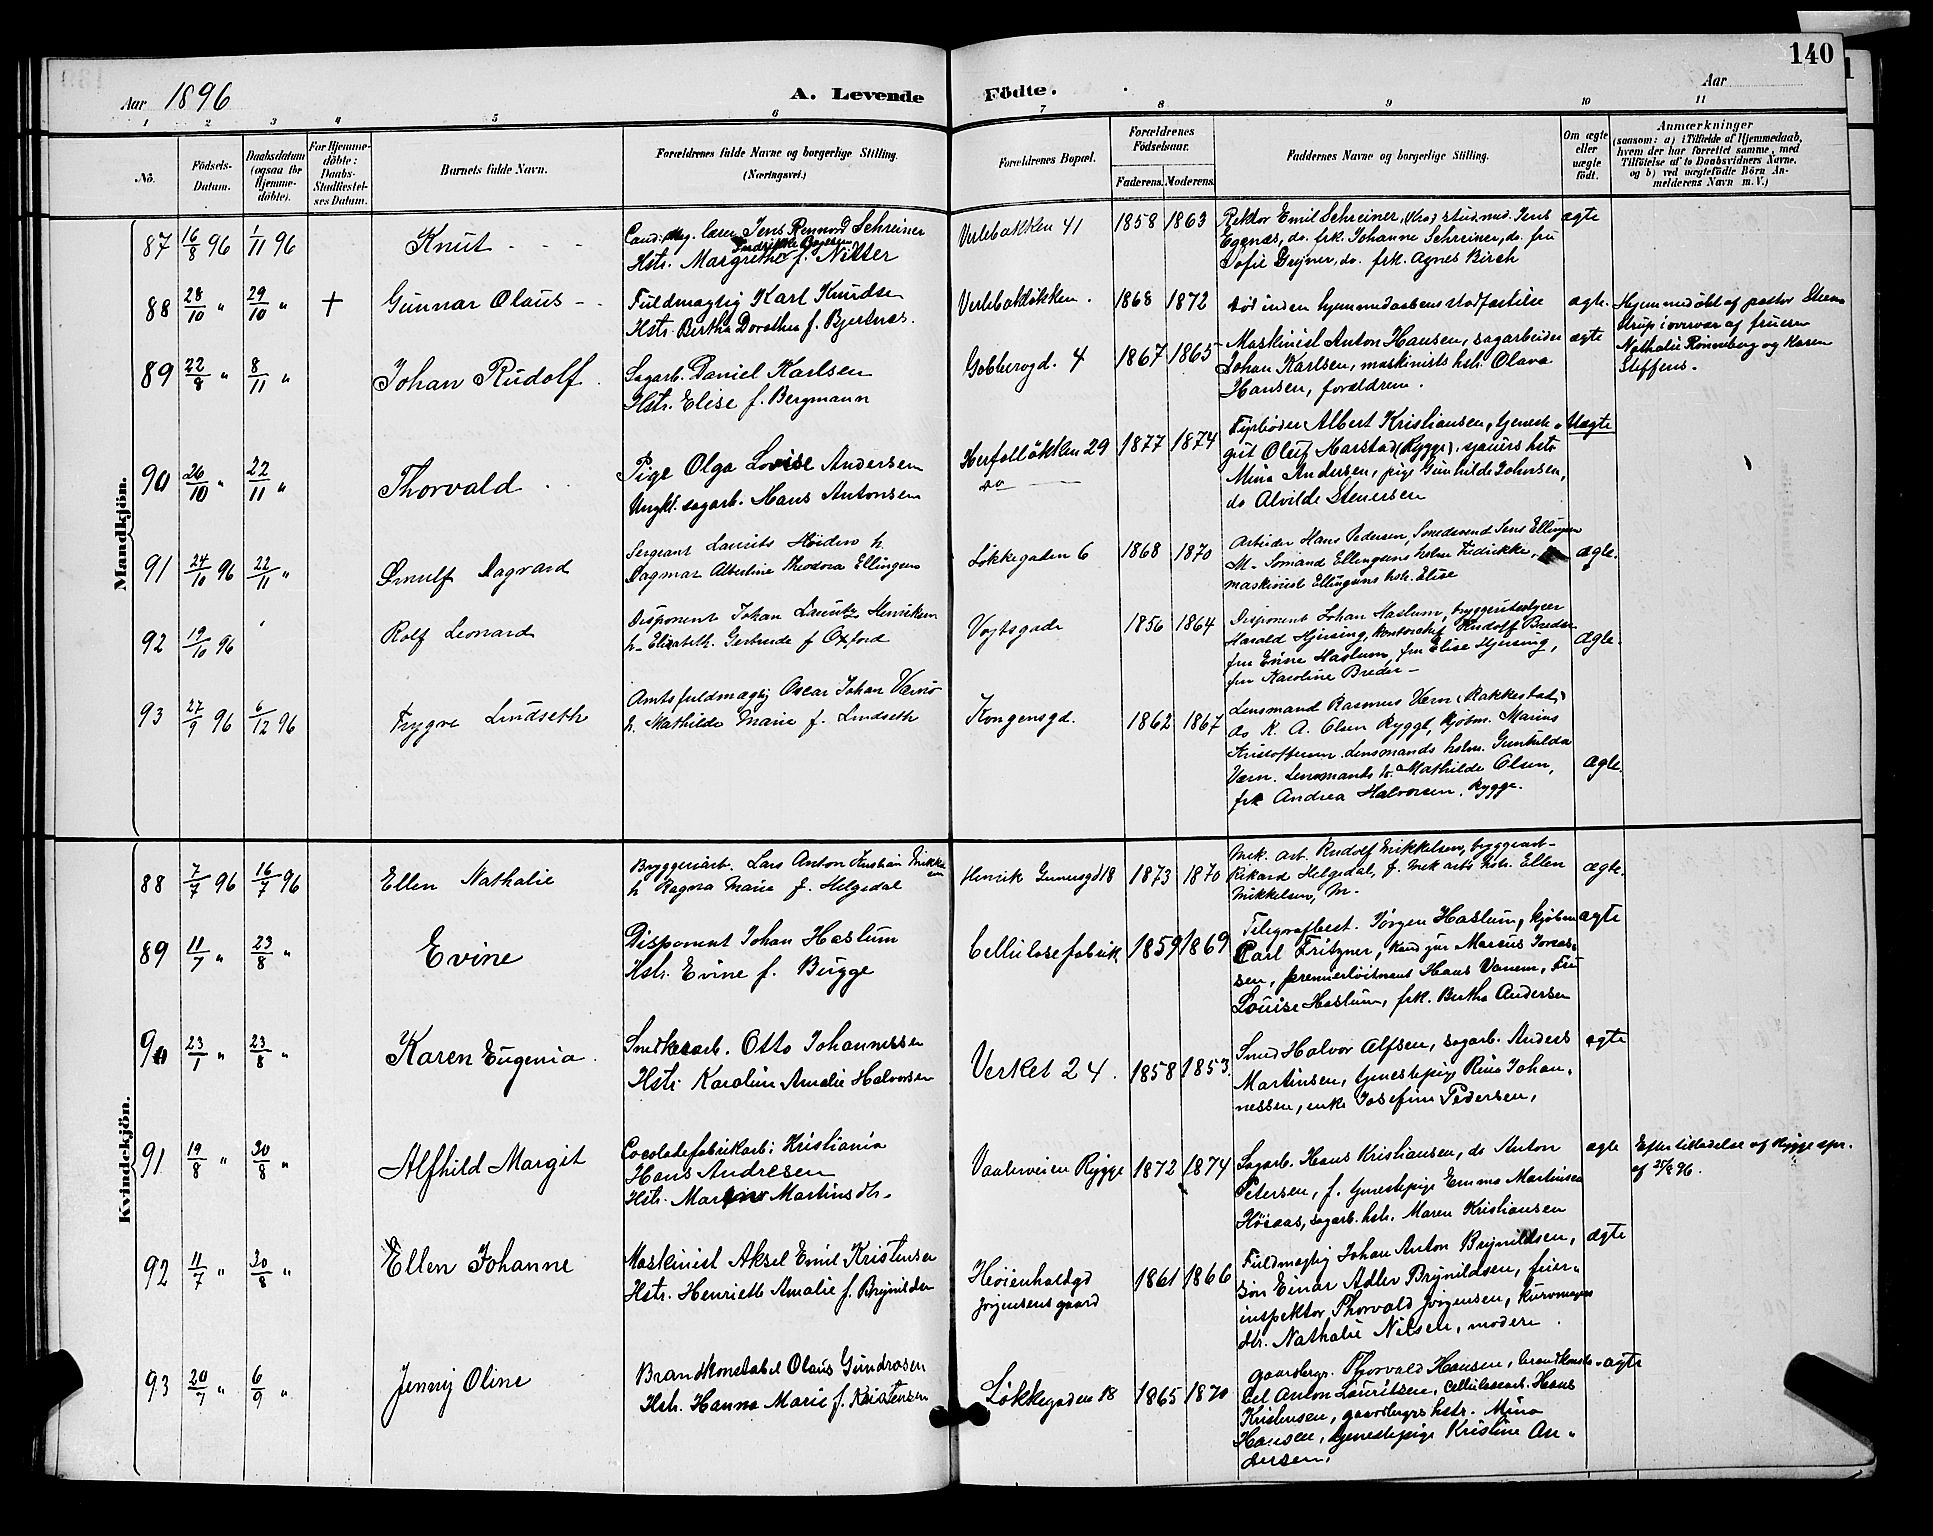 140
Aar 1896
A. Levende
Födte.
Aar
1 2 3 4 5 6 7 8 9 10 11
No.
Födsels-
Datum.
Daabsdatum
(ogsaa for
Hjemme-
döbte).
For Hjemme-
döbte:
Daabs-
Stadfæstel-
ses Datum.
Barnets fulde Navn.
Forældrenes fulde Navne og borgerlige Stilling.
(Næringsvei.)
Forældrenes Bopæl.
Forældrenes
Födselsaar.
Faderens. Moderens.
Faddernes Navne og borgerlige Stilling.
Om ægte
eller
uægte
födt.
Anmærkninger
(saasom: a) i Tilfælde af Hjemmedaab,
hvem der har forrettet samme, med
Tilföielse af to Daabsvidners Navne,
og b) ved uægtefödte Börn An-
melderens Navn m. V.)
Mandkjön.
87 16/8 96 1/11 96
Knut
Cand. mag. lærer Jens Schreiner
Fredrikke Bojesen
Hstr. Margrethe f. Nitter
Verlebakken 41
1858 1863
Rektor Emil Schreiner, stud. med. Jens
Egenæs, do. frk. Johanne Schreiner, do. fru
Sofie do. frk. Agnes Birch
ægte
88 28/10 " 29/10 " +
Gunnar Olaus
Fuldmægtig Karl Knudsen
Hstr. Bertha Dorothea f. Bjertnæs.
Verlebakken.
1868 1872
död inden hjemmedaabens stadfæstelse
ægte.
Hjemmedöbt af pastor Steens
trup i overvær af fruerne
Nathalie Rönneberg og Karen
Steffens.
89 22/8 " 8/11 "
Johan Rudolf.
Sagarb. Daniel Karlsen
Hstr. Elise f. Bergmann
4
1867 1865
Maskinist Anton Hansen, sagarbeider
Johan Karlsen, maskinists hstr. Olava
Hansen, forældrene.
ægte
90 26/10 " 22/11 "
Thorvald
Pige Olga Lovise Andersen
Ungkl. sagarb. Hans Antonsen
Herfölløkken 29
do
1877 1874
Fyrböder Albert Kristiansen, tjeneste-
gut Oluf Harstad (Rygge), hstr.
Mina Andersen, pige Gunhilde Johnsen,
do Alvilde Stenersen
Uægte
91 24/10 96 22/11 "
Ørnulf Dagvard
Sergeant Laurits h.
Dagmar Albertine Theodora Ellingsen
Løkkegaden 6
1868 1870
Arbeider Hans Pedersen, Smedsvend Jens Ellingsen
M. Sømand Ellingsens hstr. Fredrikke,
maskinist Ellingsens hstr. Elise
ægte.
92 19/10 96
Rolf Leonard
Disponent Johan Lauritz Henriksen
h. Elizabeth Gertrude f Oxford
Vogtsgade
1856 1864
Disponent Johan Haslum,
Harald Hjersing, kontorchef Rudolf Breder
fru Evine Haslum, fru Elise Hjersing,
fru Karoline Breder -
ægte.
93 27/9 96 6/12 96
Trygve Lindseth
Amtsfuldmægtig Oscar Johan Værn
h. Mathilde Marie f. Lindseth
Kongensgd.
1862 1867
Lensmand Rasmus Værn (Rakkestad)
do K. A. Olsen Rygge, kjöbm. Marius
Kristoffersen, Lensmands hstr. Gunhilda
Værn. Lensmands h. Mathilde Olsen,
frk Andrea Halvorsen, Rygge.
ægte.
Kvindekjön.
88 7/7 96 16/7 96
Ellen Nathalie
Bryggeriarb. Lars Anton Kristian Mikkelsen
h Ragna Marie f. Helgedal
Henrik Gernersgd 18
1873 1870
Mek. arb. Rudolf Mikkelsen, byggearb-
Rikard Helgedal, f. Mek arb's hstr. Ellen
Mikkelsen, M.
ægte.
89 11/7 " 23/8 "
Evine
Disponent Johan Haslum
Hstr. Evine f. Bugge
Cellulosefabrik
1859 1869
Telegrafbest. Jørgen Haslum, kjöbm
Carl Fritzner, kand. jur Marcus
sen, premierløitnant Hans Vanem, Fru
Louise Haslum, frk. Bertha Andersen
ægte
90 23/1 " 23/8 "
Karen Eugenia.
Snedkerarb. Otto Johannessen
Hstr. Karoline Amalie Halvorsen
Verket 24.
1858 1853.
Smed Halvor Alfsen, sagarb. Anders
Martinsen, tjenestepige Rina Johan-
nessen, enke Josefine Pedersen,
ægte
91 19/8 " 30/8 "
Alfhild Margit
Cocoladefabrikarb. i Kristiania
Hans Andresen
Hstr. Martinsdtr.
Vaalerveien Rygge
1872 1874
Sagarb. Hans Kristiansen, do Anton
Petersen, f. tjenestepige Emma Martinsen
sagarb. hstr. Maren Kristiansen
ægte
Efter tilladelse af Rygge spr.
af 25/8 96.
92 11/7 " 30/8 "
Ellen Johanne
Maskinist Aksel Emil Kristensen
Hstr. Henriette Amalie f. Brynildsen
Høienhaldgd
Jørgensens gaard
1861 1866
Fuldmægtig Johan Anton Brynildsen,
Einar Adler Brynildsen, feier-
inspektør Thorvald Jørgensen, kurvmager
dtr. Nathalie Nilsen, modern.
ægte
93 20/7 " 6/9 "
Jenny Oline
Brandkonstabel Olaus Gundrosen
Hstr. Hanna Marie f. Kristensen
Løkkegaden 18
1865 1870
Gaardbgr. Thorvald Hansen, brandkonsta-
bel Anton Lauritsen, Cellulosearb. Hans
Kristensen, gaardbgrs hstr. Mina
Hansen, tjenestepige Kristine An-
dersen.
ægte